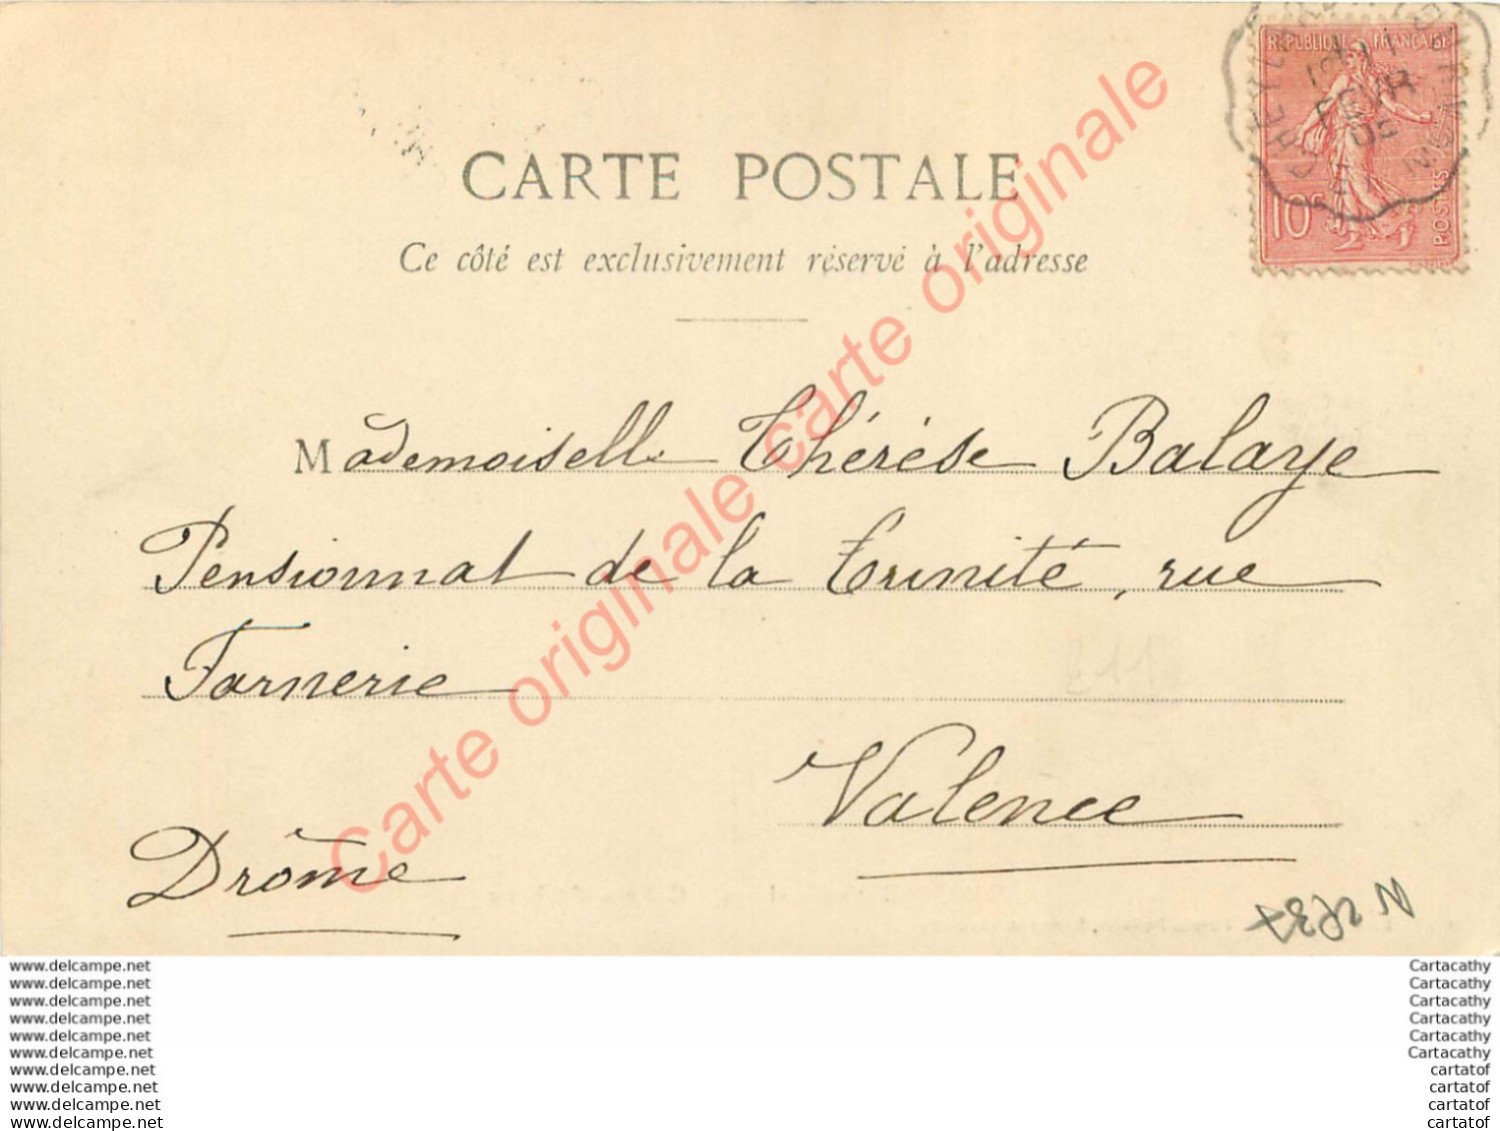 CARTE POSTALE
Ce côté est exclusivement réservé à l'adresse
REPUBLIQUE FRANÇAISE
10
POSTES
FEVR
05
Mademoiselle Thérèse Balaye
Pensionnat de la Trinité, rue
Farnerie
Valence
Drôme
Carte originale carte originale carte originale
www.delcampe.net
www.delcampe.net
www.delcampe.net
www.delcampe.net
www.delcampe.net
www.delcampe.net
www.delcampe.net
www.delcampe.net
www.delcampe.net
www.delcampe.net
Cartacathy
Cartacathy
Cartacathy
Cartacathy
Cartacathy
Cartacathy
cartatof
cartatof
cartatof
cartatof